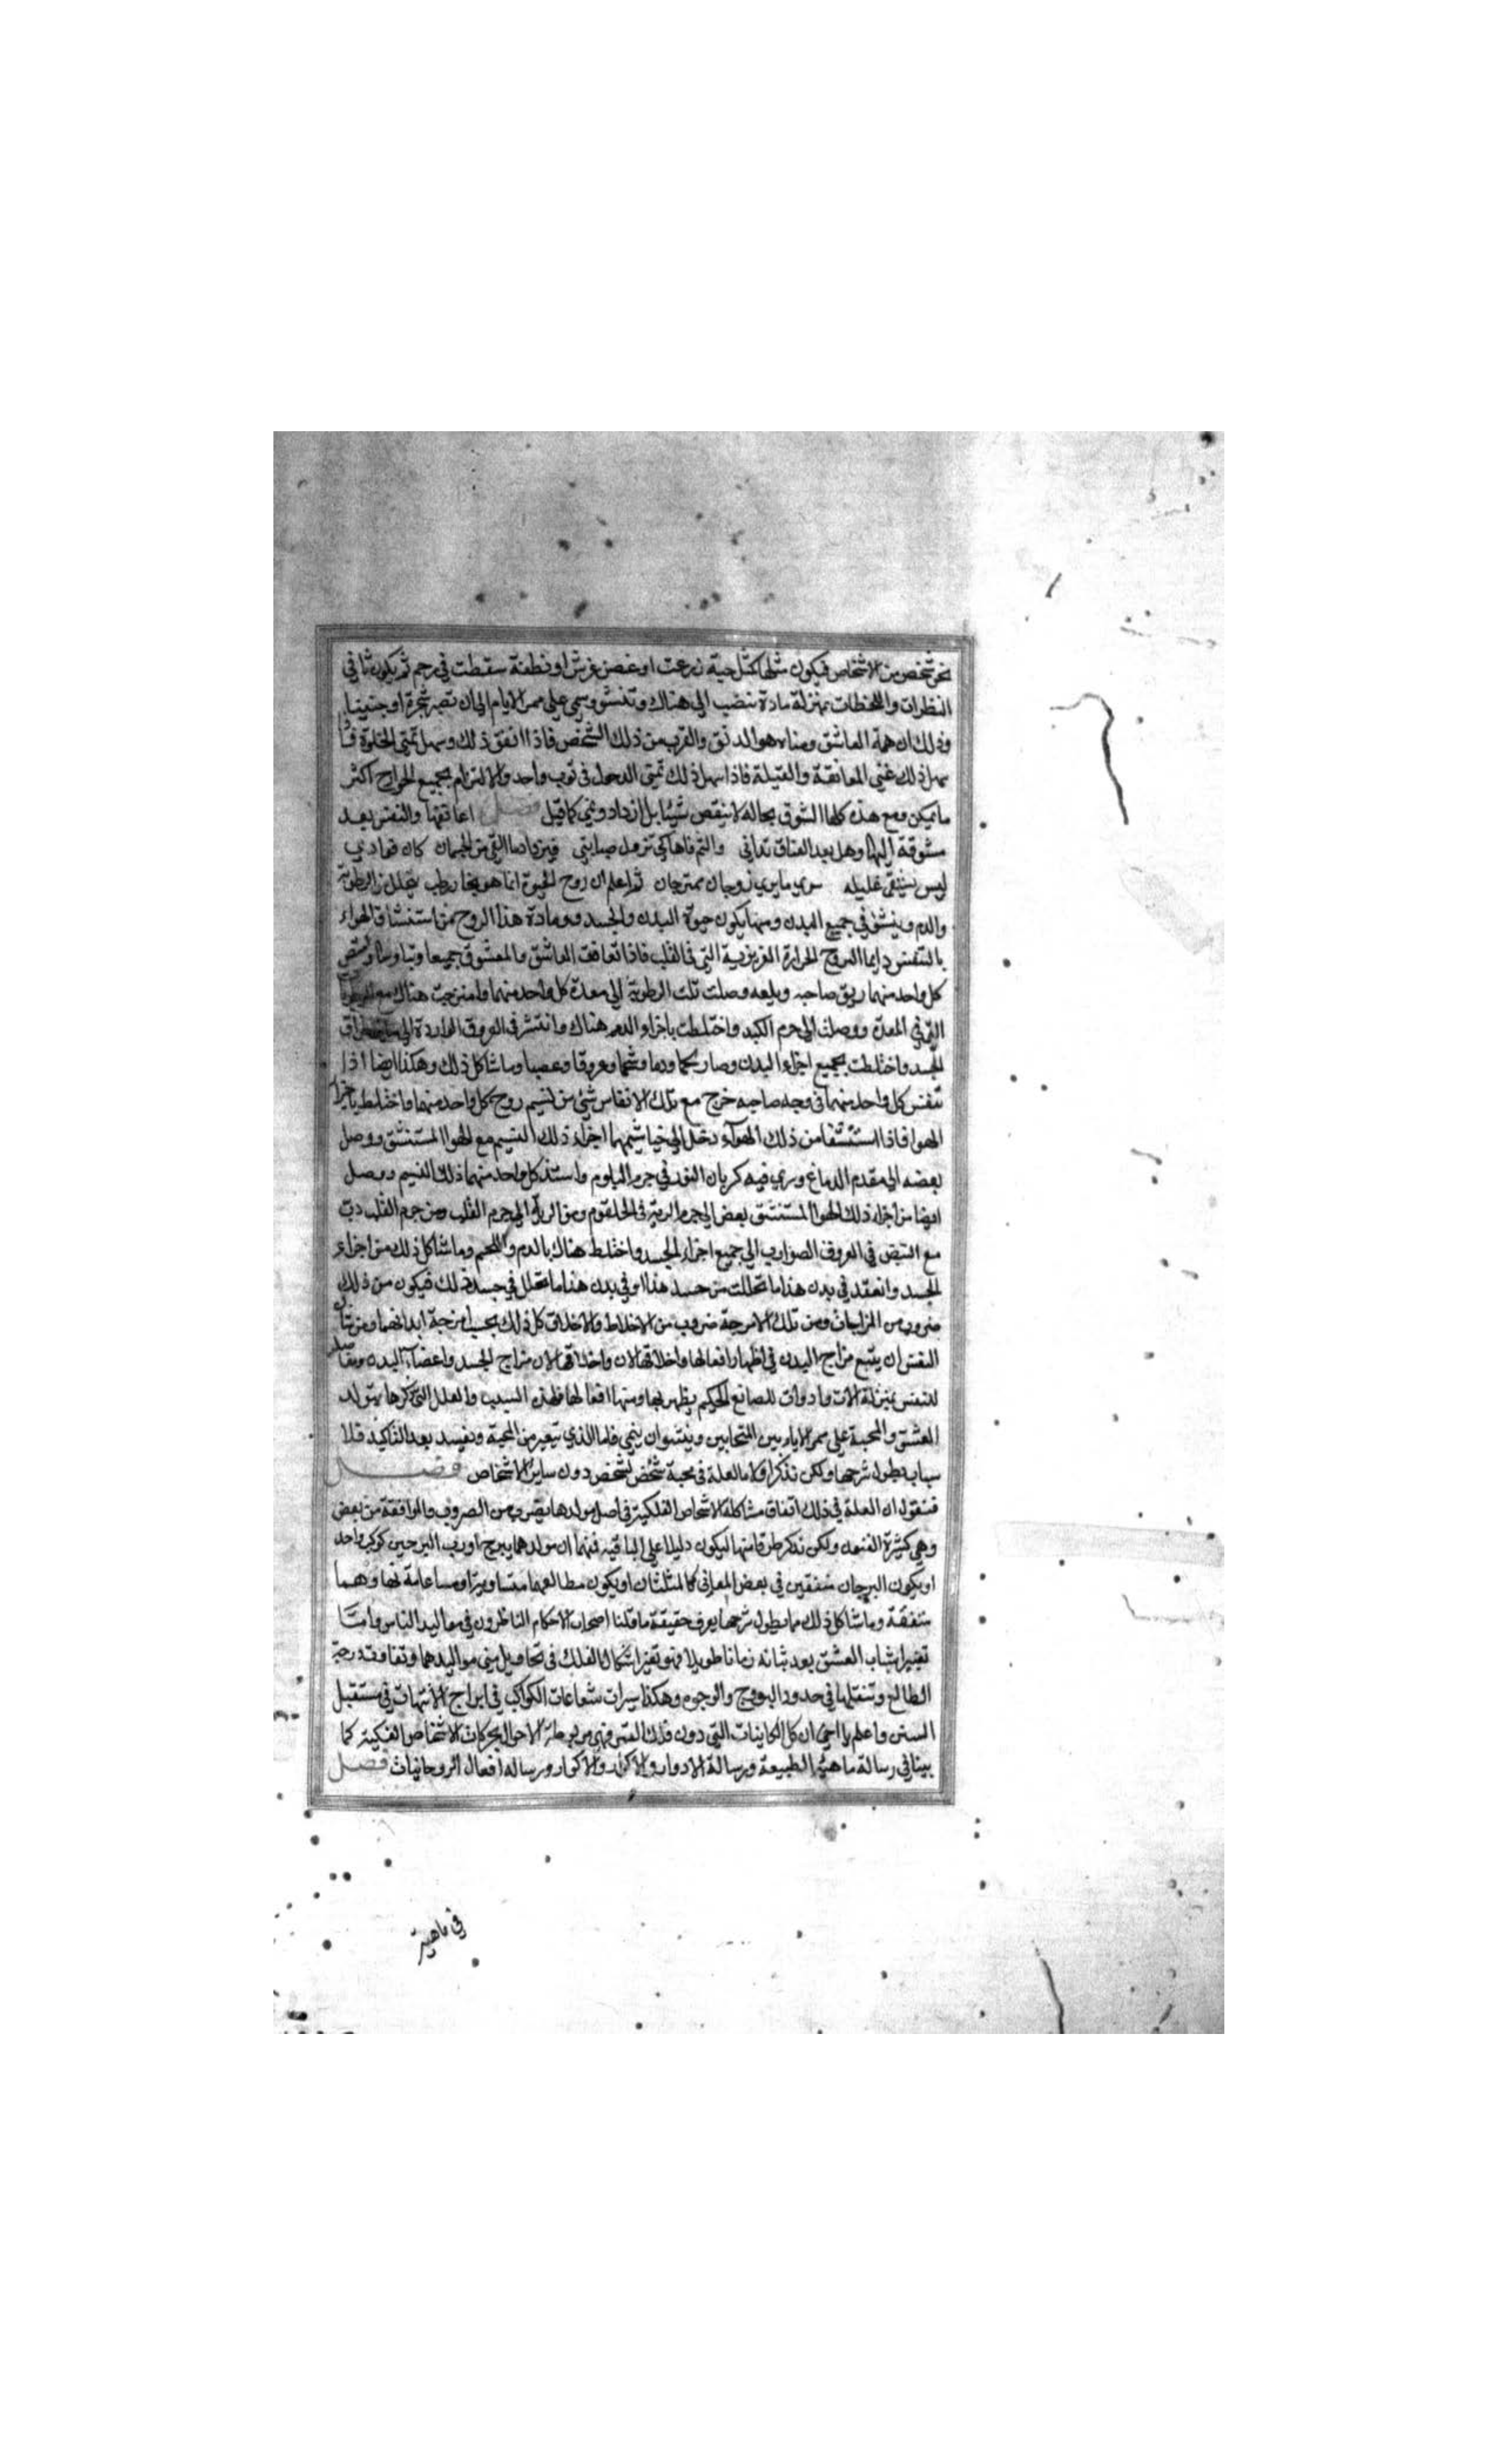 نحو شخص من الاشخاص فيكون مثلها كمثل حبة زرعت او غصن غرش او نطفة سقطت في رحم ثم يكون ثاني
النظرات واللحظات بمنزلة مادة تنضب الى هناك وتنشو وينمي على ممر الايام الى ان تصير شجرة او جنينا
وذلك ان همة العاشق ومناه هو الدنو والقرب من ذلك الشخص فاذا اتفق ذلك وسهل تمنى الخلوة
سهل ذلك تمنى المعانقة والقبلة فاذا سهل ذلك تمنى الدخول في ثوب واحد والالتزام بجميع الجوارح اكثر
ما يمكن ومع هذه كلها الشوق بحاله لا ينقص شيئا بل ازداد ونمي كما قيل اعانقها والنفس بعد
مشوقة اليها وهل بعد العناق تداني والثم فاها كي تزول صبابتي فيزداد ما القى من الهيمان كان فوادي
ليس يشفى غليله سوى ما يرى زوجان ممتزجان ثم اعلم ان روح الحيوة انما هو بخار رطب يتحلل من الرطوبة
والدم وينشو في جميع البدن ومنها يكون حيوة البدن والجسد ومادة هذا الروح من استنشاق الهواء
بالتنفس دايما لتروح الحرارة الغريزية التي في القلب فاذا تعانقت العاشق والمعشوق جميعا وتباوسا وامتص
كل واحد منهما ريق صاحبه وبلعه وصلت تلك الرطوبة الى معدة كل واحد منهما وامتزجت هناك مع الرطوبات
التي في المعدة ووصلت الى جرم الكبد واختلطت باجزاء الدم هناك وانتشر في العروق الواردة الى ساير اطراف
الجسد واختلطت بجميع اجزاء البدن وصار لحما ودما وشحما وعروقا وعصبا وما شاكل ذلك وهكذا ايضا اذا
تنفس كل واحد منهما في وجه صاحبه خرج مع تلك الانفاس شيئ من نسيم روح كل واحد منهما واختلط باجزاء
الهوا فاذا استنشقا من ذلك الهواء دخل الى خياشيمهما اجزاء ذلك النسيم مع الهوا المستنشق ووصل
بعضه الى مقدم الدماغ وسرى فيه كريان النور في جرم البلوم واستلذ كل واحد منهما ذلك النسيم ووصل
ايضا من اجزاء ذلك الهوا المستنشق بعض الى جرم الرية في الحلقوم ومن الرية الى جرم القلب ومن جرم القلب دب
مع النبض في العروق الضوارب الى جميع اجزاء الجسد واختلط هناك بالدم واللحم وما شاكل ذلك من اجزاء
الجسد وانعقد في بدن هذا ما تحللت من جسد هذا او في بدن هذا ما تحلل في جسد ذلك فيكون من ذلك
ضروب من المزاجات ومن تلك الامزجة ضروب من الاخلاط والاخلاق كل ذلك بحسب امزجة ابدانهما ومن شان
النفس ان يتبع مزاج البدن في اظهار افعالها واخلاقها لان واخلاقها لان مزاج الجسد واعضاء البدن ومفاصله
للنفس بمنزلة الات وادوات للصانع الحكيم يظهر بها ومنها افعالها فلهذه السبب والعلل التي ذكرها يتولد
العشق والمحبة على ممر الايام بين المتحابين وينشوان ينمي فاما الذي يتغير من المحبة ويفسد بعد التاكيد فلا
سباب يطول شرحها ولكن نذكر اولا ما العلة في محبة شخص لشخص دون ساير الاشخاص فصل
فنقول ان العلة في ذلك اتفاق مشاكلة الاشخاص الفلكية في اصل مولدها بضرب من الصروف والموافقة من بعض
وهي كثيرة الفنون ولكن نذكر طرقا منها ليكون دليلا على الباقية فمنها ان مولدهما ببرج او رب البرجين كوكب واحد
او يكون البرجان متفقين في بعض المعاني كالمثلثات او يكون مطالعهما متساوية او ساعات نهارهما
متفقة وما شاكل ذلك مما يطول شرحها يعرف حقيقة ما قلنا اصحاب الاحكام الناظرون في مواليد الناس واما
تغير اسباب العشق بعد ثباته زمانا طويلا فهو تغير اشكال الفلك في تحاويل سني مواليدهما وتفاوت درجة
الطالع وتنقلها في حدود البروج والوجوه وهكذا سيرات شعاعات الكواكب في ابراج الانتهات في مستقبل
السنن واعلم يا اخي ان كل الكاينات التي دون فلك القمر فهي مربوطة الاحوال بحركات الاشخاص الفلكية كما
بينا في رسالة ماهية الطبيعة ورسالة الادوار والاكوار ورسالة افعال الروحانيات فصل
في ماهية